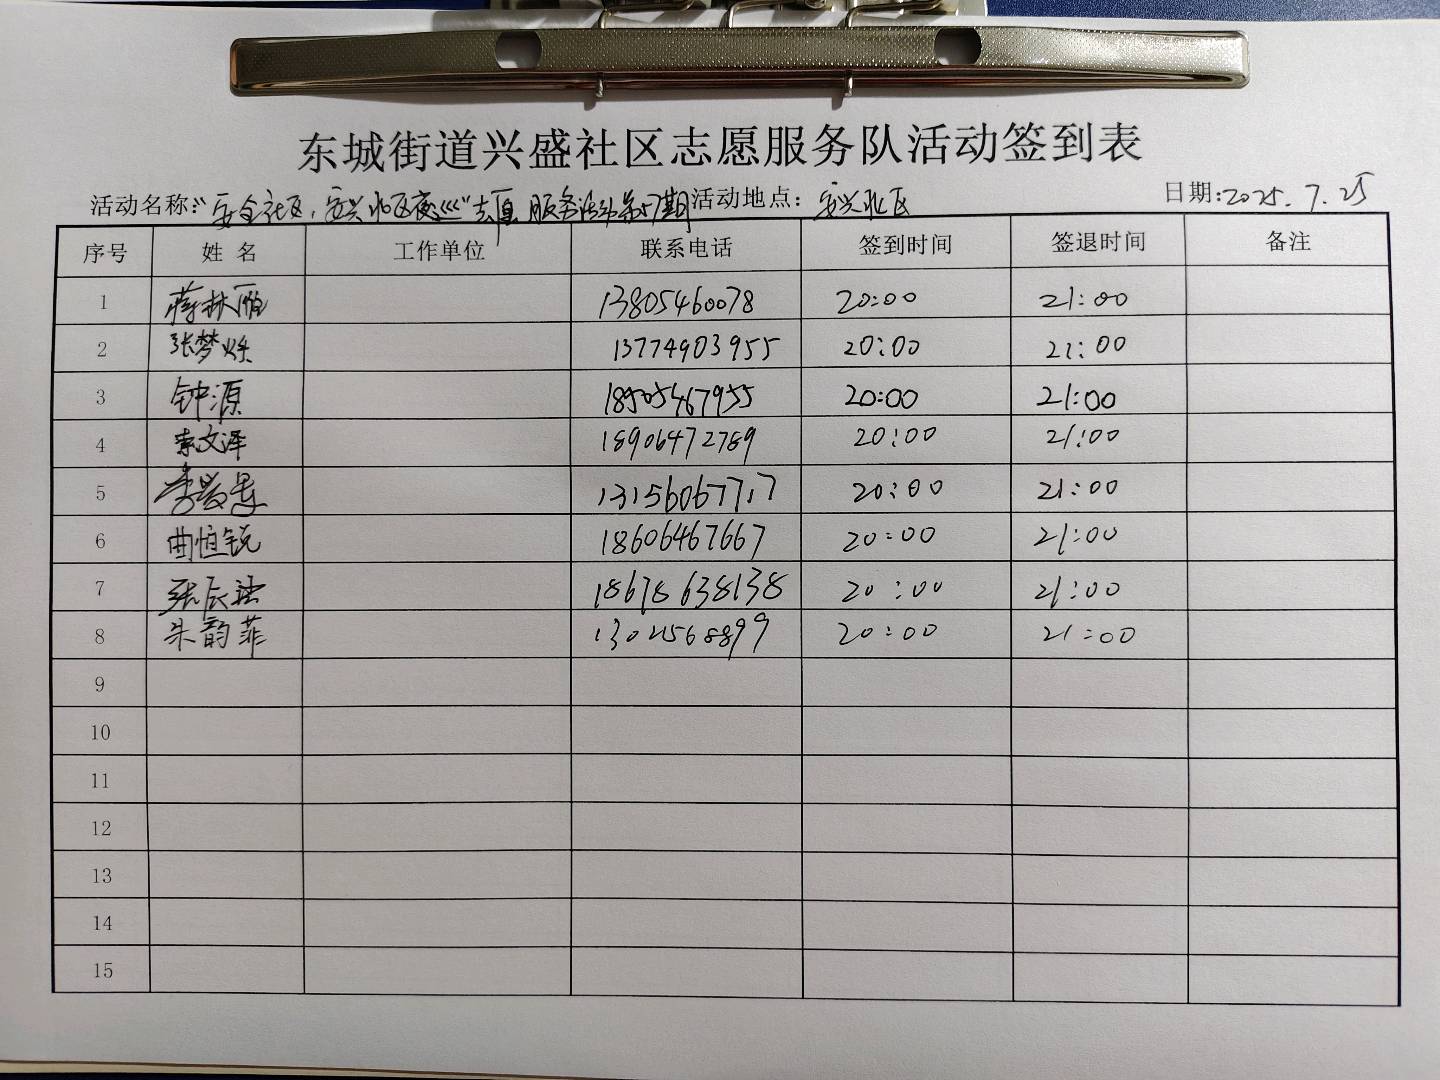 东城街道兴盛社区志愿服务队活动签到表
活动名称:"安全社区,安兴北区夜巡"志愿服务活动第57期 活动地点: 安兴北区 日期:2025.7.25
序号 姓名 工作单位 联系电话 签到时间 签退时间 备注
1 蒋林丽 13805460078 20:00 21:00
2 张梦 13774903955 20:00 21:00
3 钟源 18505467955 20:00 21:00
4 索文泽 18906472789 20:00 21:00
5 李 13156067717 20:00 21:00
6 曲恒锐 18606467667 20:00 21:00
7 张辰 18678638138 20:00 21:00
8 朱韵菲 20:00 21:00
9
10
11
12
13
14
15